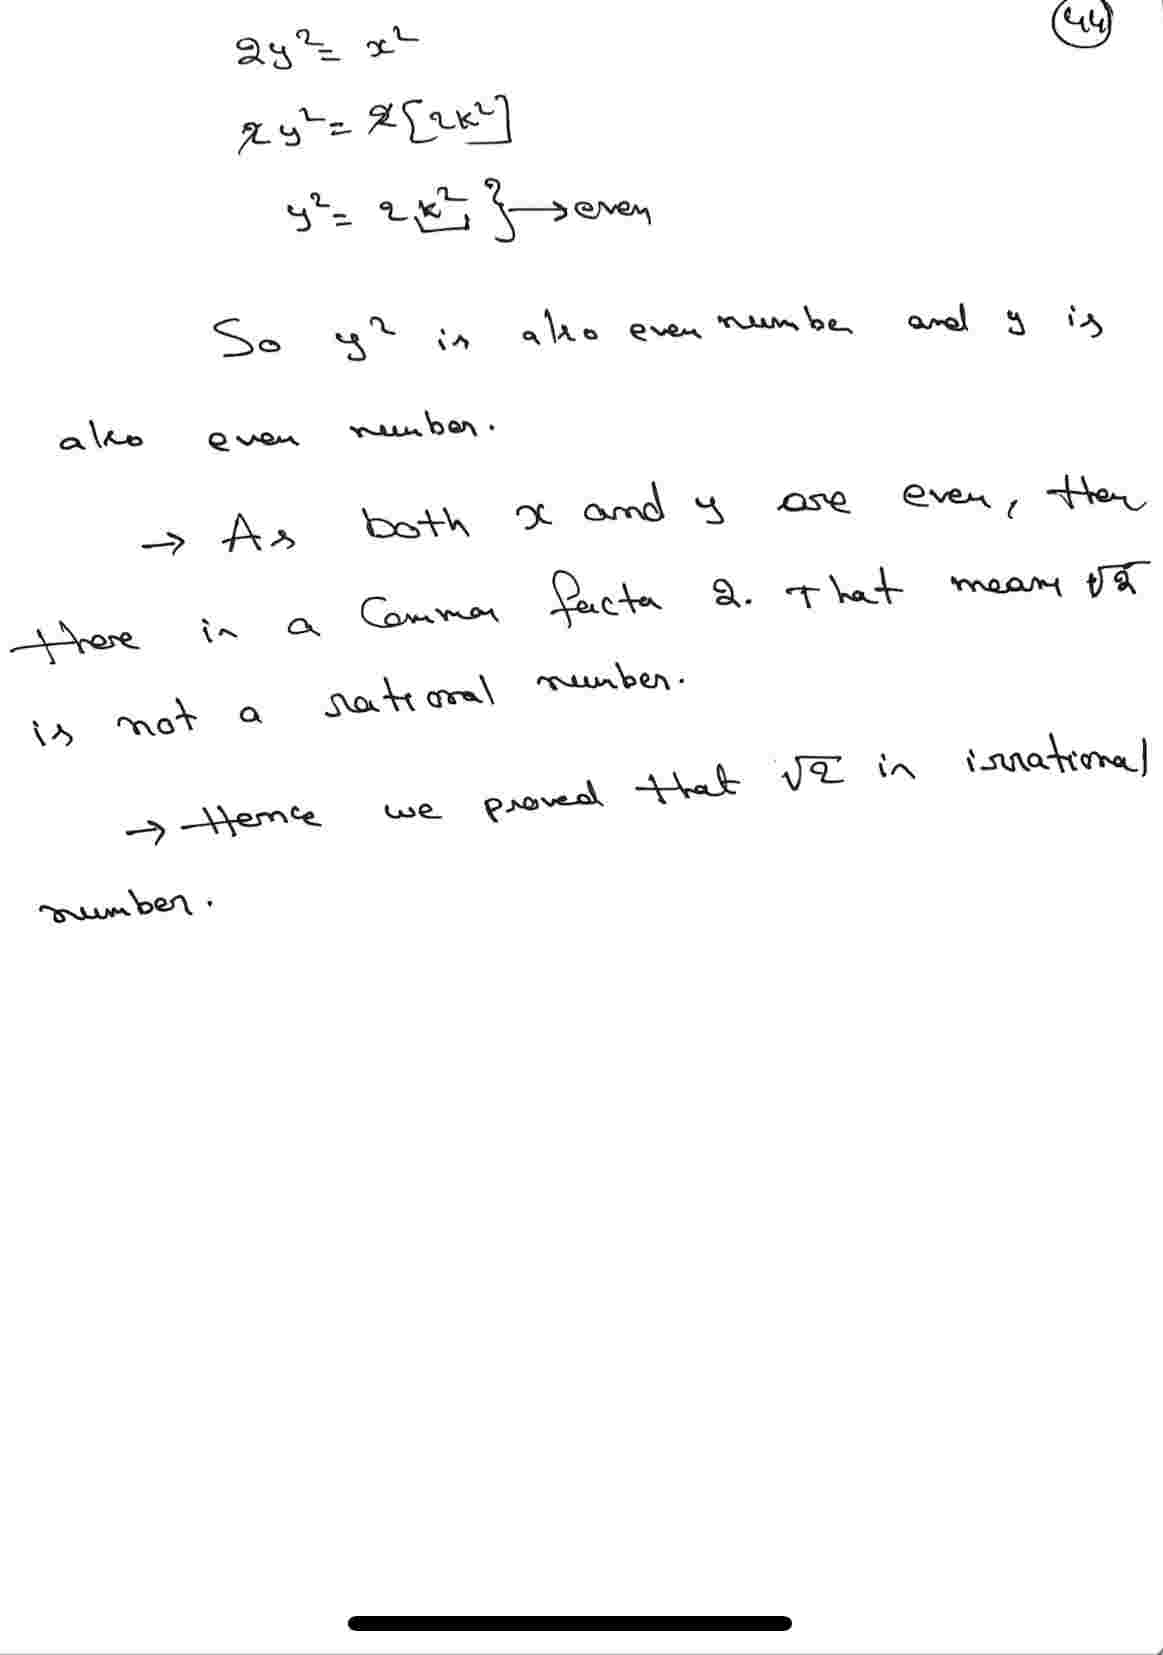 44
2y² = x²
2y² = 2[2k²]
y² = 2k² } → even
So y² is also even number and y is
also even number.
→ As both x and y are even, then
there is a common factor 2. That means √2
is not a rational number.
→ Hence we proved that √2 is irrational
number.